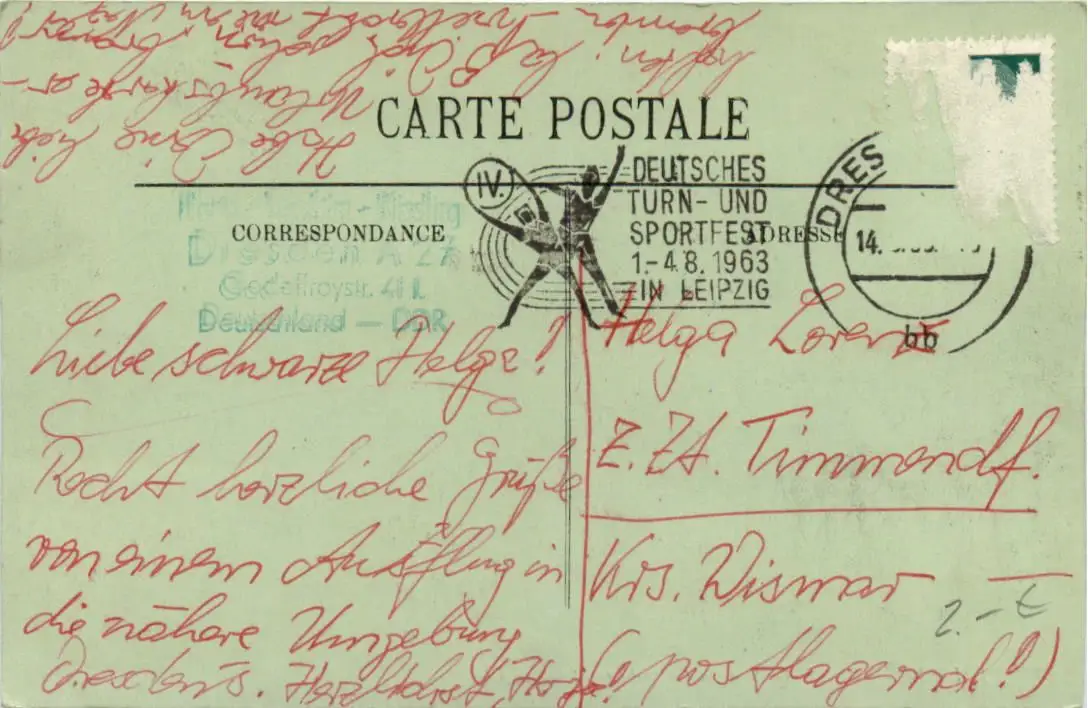 CARTE POSTALE
CORRESPONDANCE
ADRESSE
IV.
DEUTSCHES
TURN- UND
SPORTFEST
1.-4.8.1963
IN LEIPZIG
DRES
14.
bb
Dresden A 27
Godeffroystr. 4 I.
Deutschland — DDR
Liebe schwarze Helga!
Recht herzliche Grüße
von einem Ausflug in
die nähere Umgebung
Dresdens. Herzlichst,
Habe Eine liebe
Urlaubskarte er-
hofften, daß Dich schon
Helga Lorenz
Z. Zt. Timmendf.
Krs. Wismar
(postlagernd!)
2.-